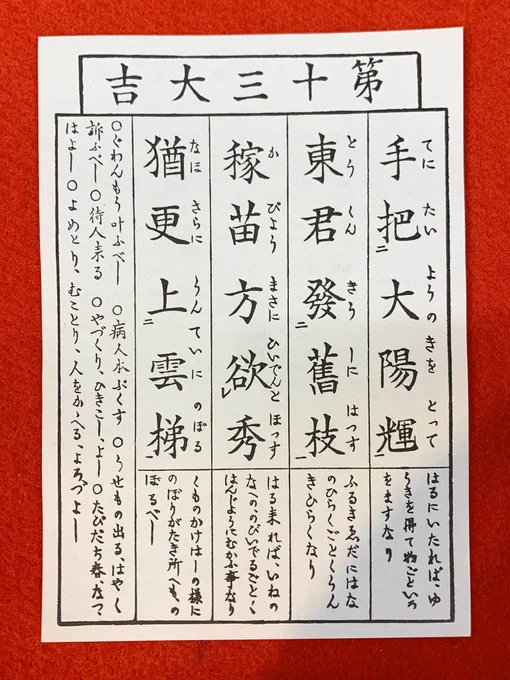 第十三大吉
手把二大陽輝一
てに たい ようの きを とって
はるにいたれば、ゆ
うきを得て物ごといろ
をますなり
東君發二舊枝一
とう くん きう しに はつす
ふるきゑだにはな
のひらくごとくうん
きひらくなり
稼苗方欲レ秀
か びょう まさに ひいでんと ほっす
はる来れば、いねの
なへの、のびいでるごとく
はんじょうにむかふ事なり
猶更上二雲梯一
なほ さらに うんていに のぼる
くものかけはしの様に
のぼりがたき所へも、の
ぼるべし
○ぐわんもう叶ふべし ○病人本ぷくす ○うせもの出る、はやく
訴ふべし ○待人来る ○やづくり、ひきこし、よし ○たびだち春、なつ、
はよし ○よめとり、むことり、人をかゝへる、よろづよし